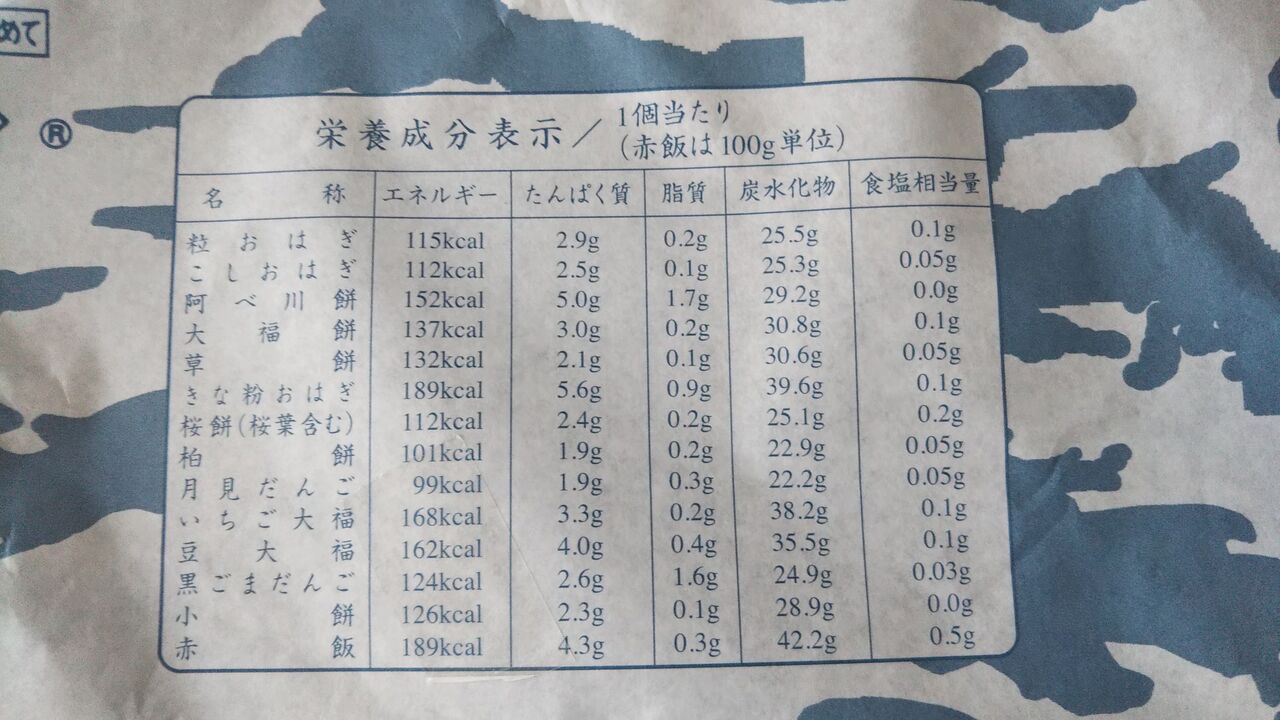 めて
®
栄養成分表示／1個当たり
(赤飯は100g単位)
名称 エネルギー たんぱく質 脂質 炭水化物 食塩相当量
粒おはぎ 115kcal 2.9g 0.2g 25.5g 0.1g
こしおはぎ 112kcal 2.5g 0.1g 25.3g 0.05g
阿べ川餅 152kcal 5.0g 1.7g 29.2g 0.0g
大福餅 137kcal 3.0g 0.2g 30.8g 0.1g
草餅 132kcal 2.1g 0.1g 30.6g 0.05g
きな粉おはぎ 189kcal 5.6g 0.9g 39.6g 0.1g
桜餅(桜葉含む) 112kcal 2.4g 0.2g 25.1g 0.2g
柏餅 101kcal 1.9g 0.2g 22.9g 0.05g
月見だんご 99kcal 1.9g 0.3g 22.2g 0.05g
いちご大福 168kcal 3.3g 0.2g 38.2g 0.1g
豆大福 162kcal 4.0g 0.4g 35.5g 0.1g
黒ごまだんご 124kcal 2.6g 1.6g 24.9g 0.03g
小餅 126kcal 2.3g 0.1g 28.9g 0.0g
赤飯 189kcal 4.3g 0.3g 42.2g 0.5g